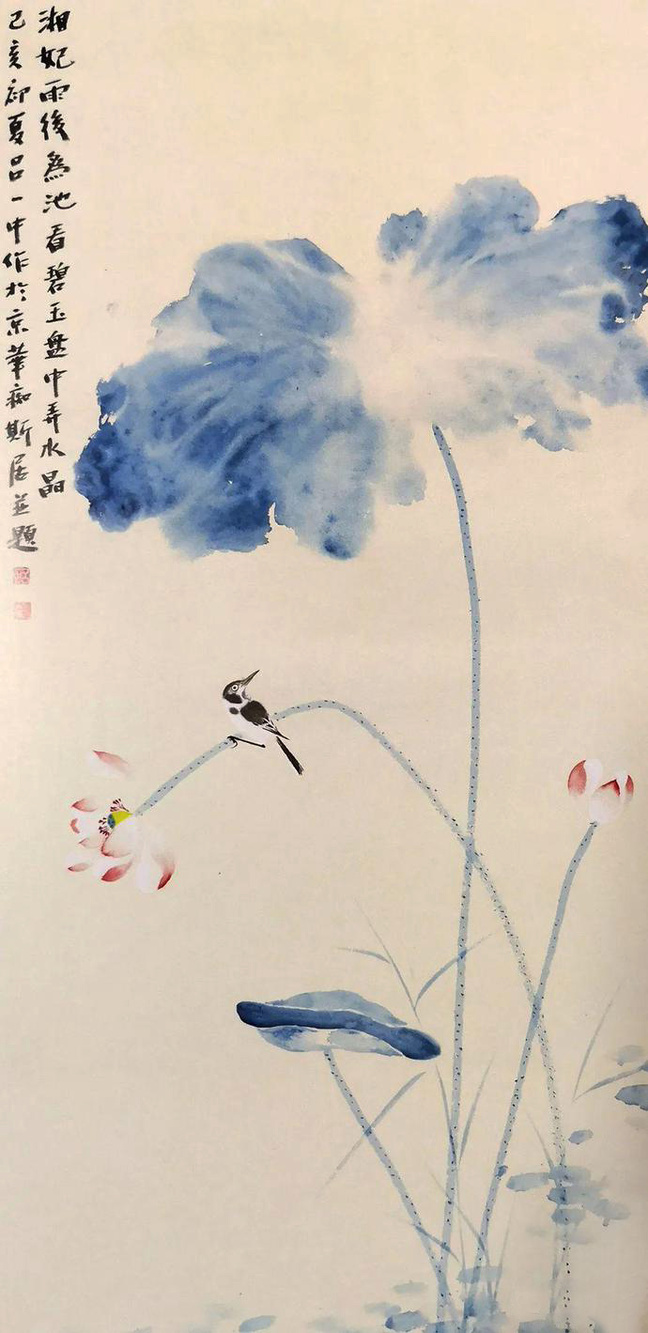 湘妃雨後為池看碧玉盤中弄水晶
己亥初夏吕一中作於京華痴斯居並題